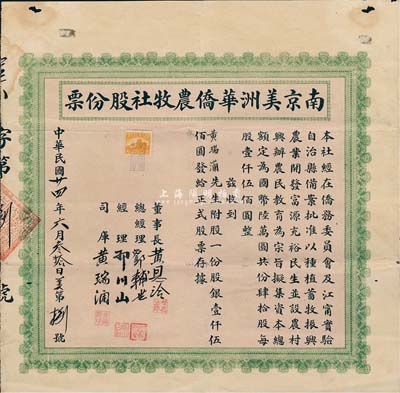 南京美洲華僑農牧社股份票
本社經在僑務委員會及江甯實驗
自治縣備案批准以種植蓄牧振興
農業開發富源充裕民生並設農村
興辦農民教育為宗旨擬集資本總
額定為國幣陸萬圓共份肆拾股每
股壹仟伍佰圓整
茲收到
黃瑞瀾先生附股一份股銀壹仟伍
佰圓發給正式股票存據
董事長
總經理
經理 鄧川山
司庫 黃瑞瀾
中華民國廿四年六月叁拾日美第捌號
字第
捌
號